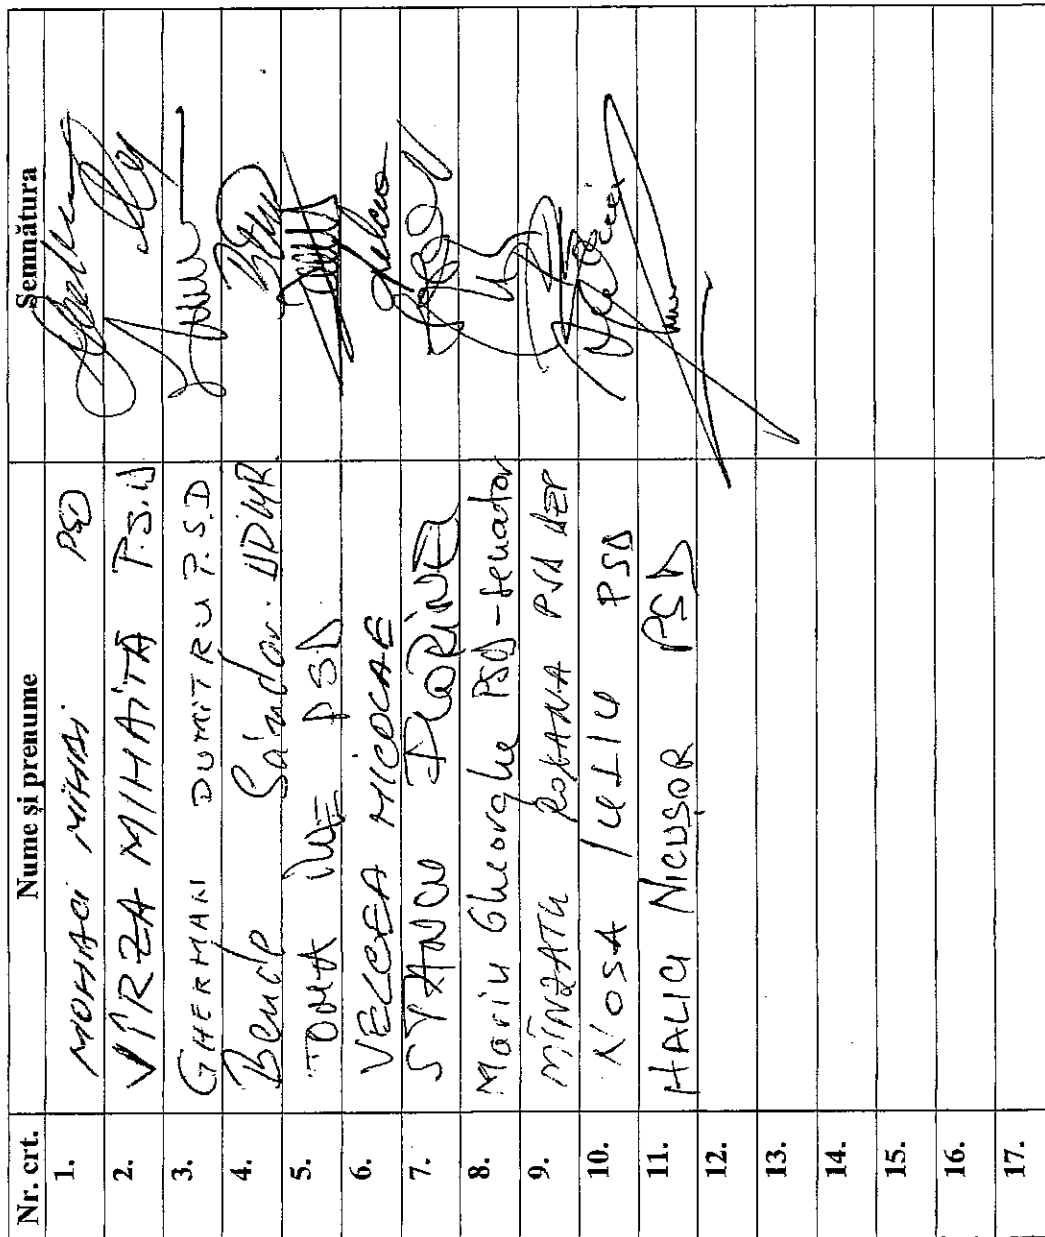 Nr. crt. Nume și prenume Semnătura
1. MOHACI MIHAI PSD
2. VÎRZA MIHAIȚĂ P.S.D
3. GHERMAN DUMITRU P.S.D
4. Bende Sándor. UDMR
5. TOMA ILIE PSD
6. VELCEA NICOLAE
7. STANCU FLORINEL
8. Marin Gheorghe PSD - senator
9. MÎNZATU ROXANA PSD DEP
10. NOSA IULIU PSD
11. HALICI NICUȘOR PSD
12.
13.
14.
15.
16.
17.